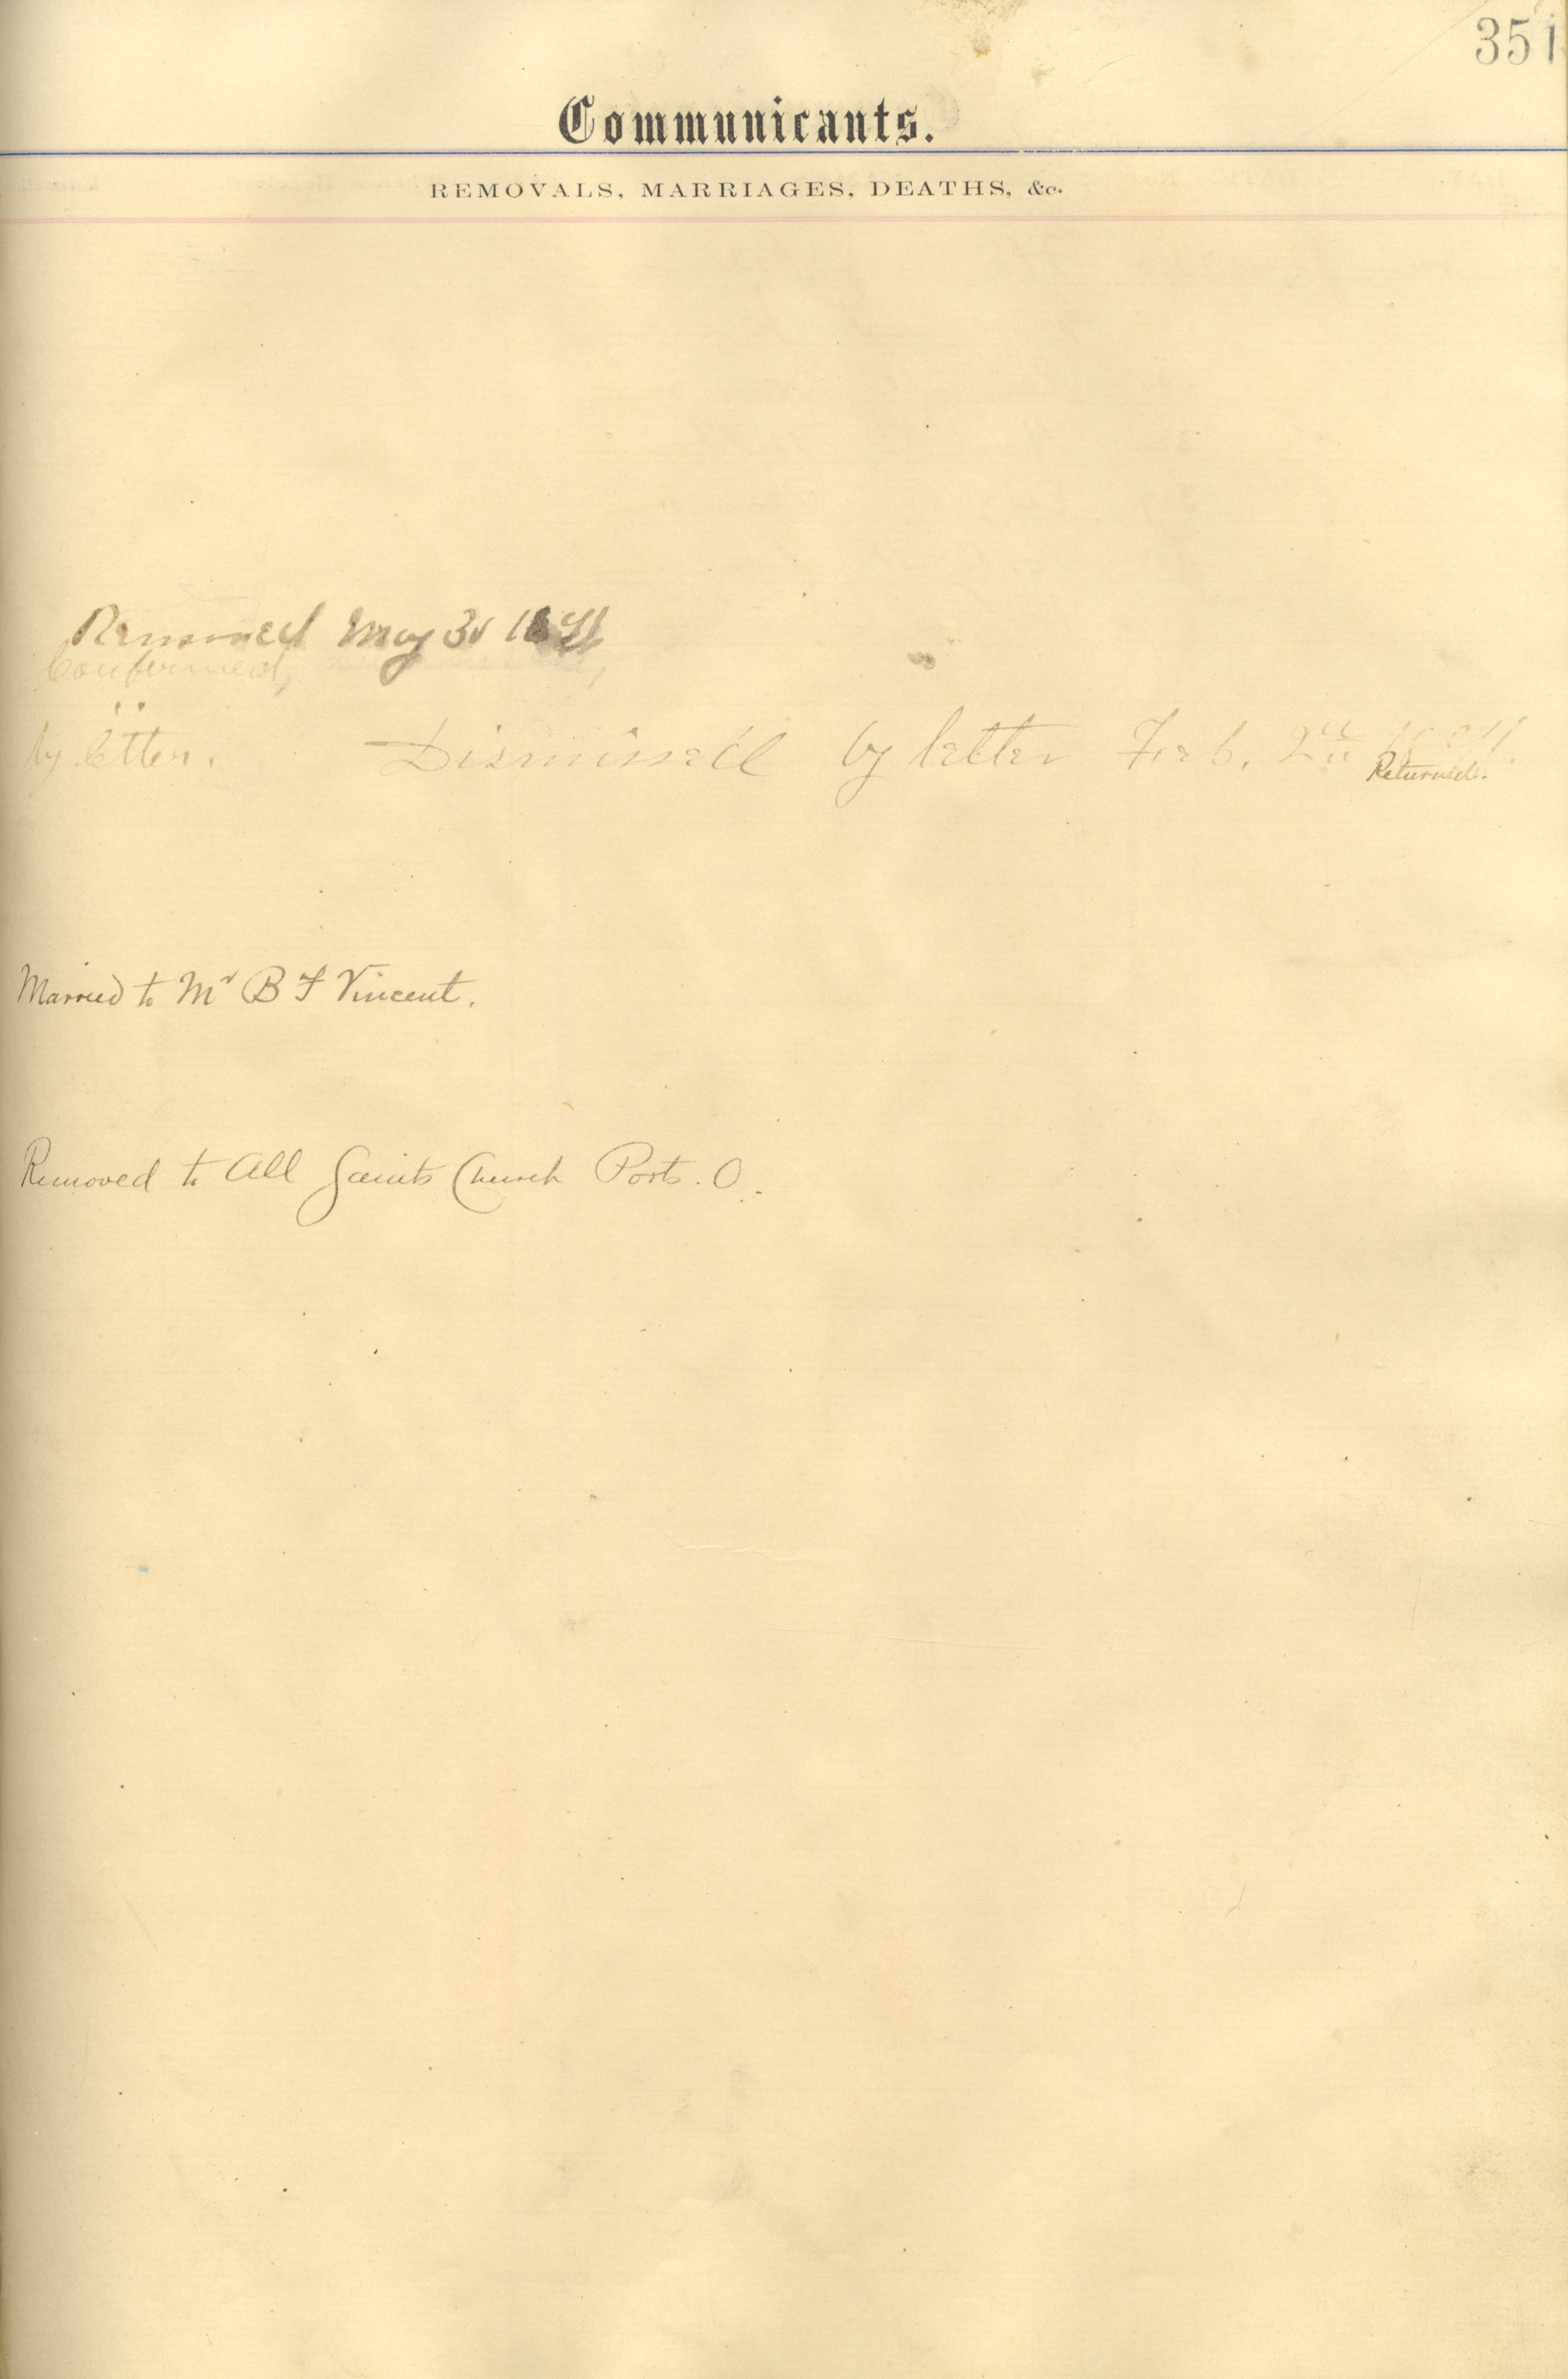 351
Communicants.
REMOVALS, MARRIAGES, DEATHS, &c.
Removed May 3
Confirmed,
" "
by letter. Dismissed by letter Feb.
Returned.
Married to Mr B F Vincent.
Removed to All Saints Church Ports. O.